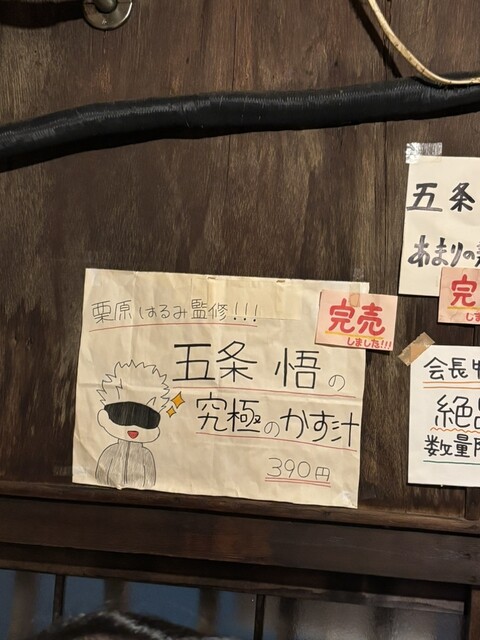 栗原はるみ監修!!!
完売
しました!!!
五条 悟の
究極のかす汁
390円
五条
あまりの
完
しま
会長
絶品
数量